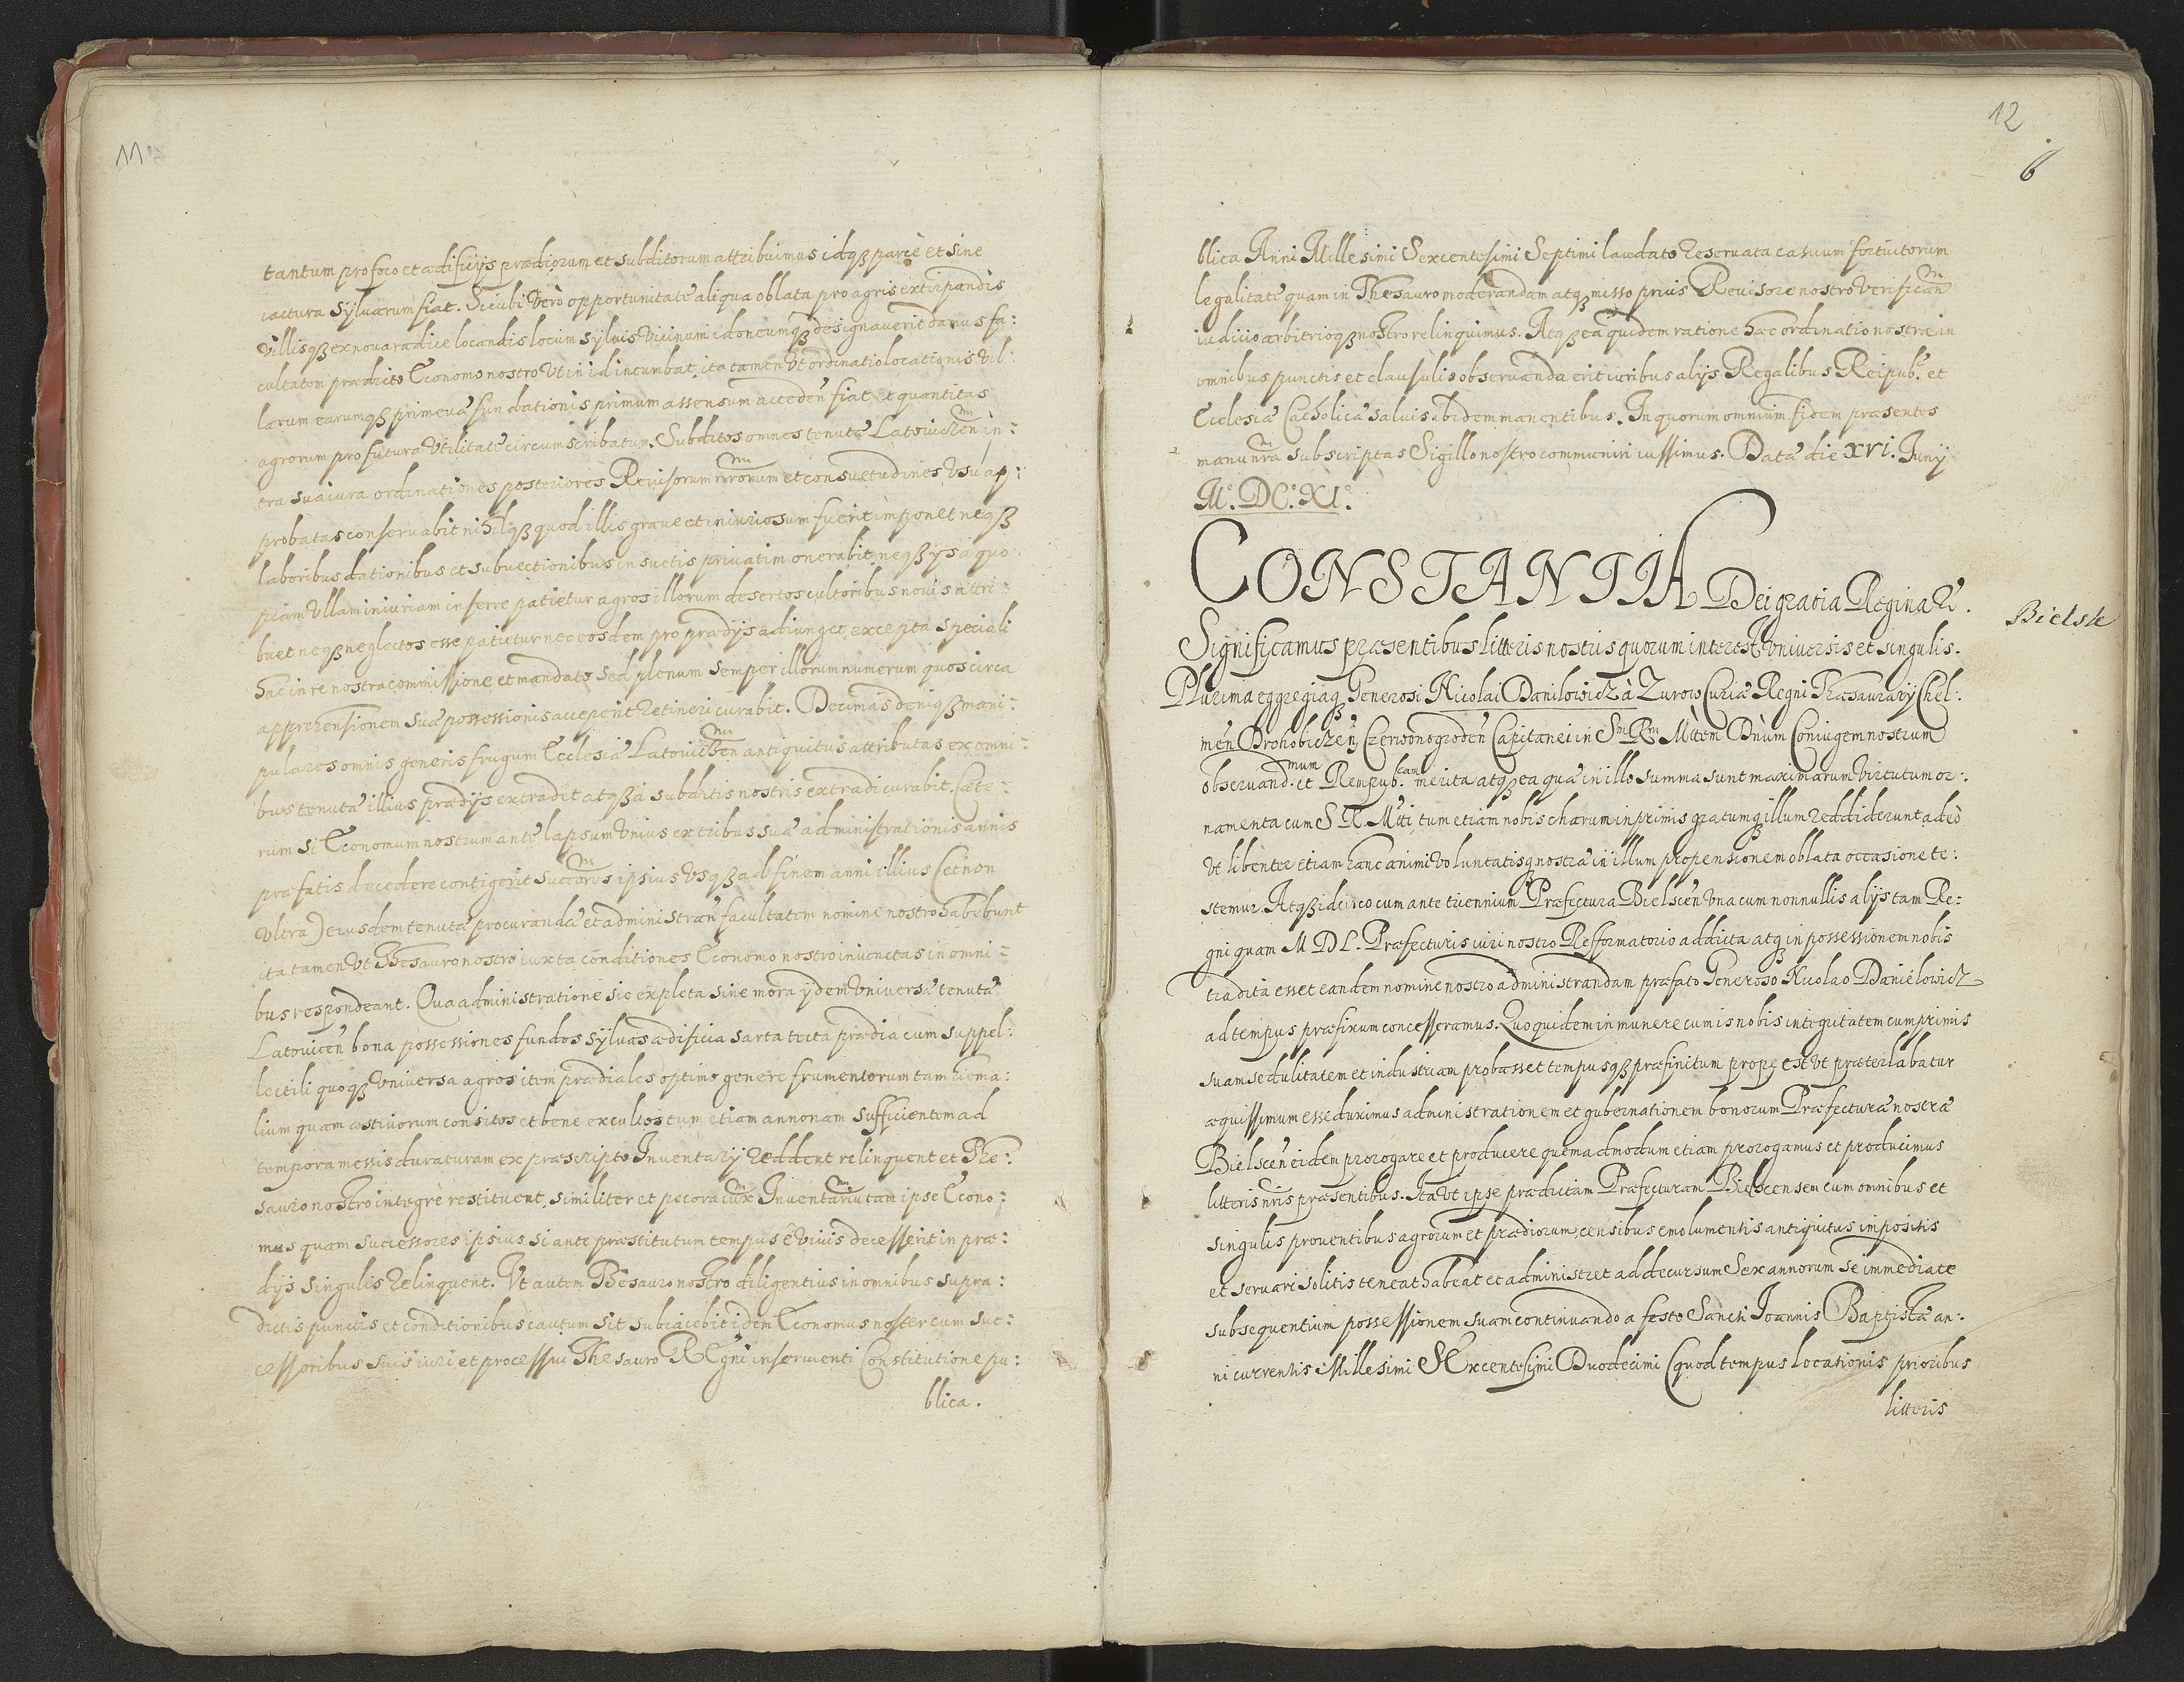 11
tantum pro foco et ædificijs prædiorum et subditorum attribuimus idqз parcè et sine
iactura sylvarum fiat. Sicubi Verò opportunitate aliqua oblata pro agris extirpandis
villisqз ex nova radice locandis locum sylvis vicinum idoneumqз designaverit damus fa:
cultatem prædicto Œconomo nostro Vt in id incumbat, ita tamen Vt ordinatio locationis vil:
larum earumqз primevæ fundationis primum assensum acceden̄ fiat et quantitas
agrorum pro futura Vtilitate circumscribatur. Subditos omnes tenutæ Latovicken̄ in:
tra sua iura ordinationes posteriores Revisorum nrrorum et consuetudines Vsu ap:
probatas conservabit nihilqз quod illis grave et iniuriosum fuerit imponet neqз
laboribus dationibus et subvectionibus insuetis privatim onerabit, neqз ijs a quo:
piam Vllam iniuriam inferre patietur agros illorum desertos cultoribus novis attri:
buet neqз neglectos esse patietur nec eosdem pro prædijs adiunget, excepta speciali
hac in re nostra commissione et mandato sed plenum semper illorum numerum quos circa
apprehensionem suæ possessionis acceperit retineri curabit. Decimas deniqз mani:
pulares omnis generis frugum Ecclesiæ Latovicen̄ antiquitus attributas ex omni:
bus tenutæ illius prædijs extradit atqз à subditis nostris extradi curabit. Cæte:
rum si Œconomum nostrum ante lapsum Vnius ex tribus suæ administrationis annis
præfatis decedere contigerit succores ipsius Vsqз ad finem anni illius (et non
Vltra) eiusdem tenutæ procurandæ et administran̄ facultatem nomine nostro habebunt
ita tamen Vt Thesauro nostro iuxta conditiones Œconomo nostro iniunctas in omni:
bus respondeant. Qua administratione sic expleta sine mora ijdem Vniversa tenutæ
Latovicen̄ bona possessiones fundos sylvas ædificia sarta tecta prædia cum suppel:
lectili quoqз Vniversa agros item prædiales optimo genere frumentorum tam hiema:
lium quam æstivorum consitos et bene excultos tum etiam annonam sufficientem ad
tempora messis duraturam ex præscripto Inventarij reddent relinquent et The:
sauro nostro integrè restituent, similiter et pecora iux Inventariu tam ipse Œcono:
mus quam successores ipsius si ante præstitutum tempus è vivis decesserit in præ:
dijs singulis relinquent. Vt autem Thesauro nostro diligentius in omnibus supra:
dictis punctis et conditionibus cautum sit subiacebit idem Œconomus noster cum suc:
cessoribus suis iuri et processui Thesauro REgni inservienti Constitutione pu:
blica.
12
6
blica Anni Millesimi Sexcentesimi Septimi laudato reservata casuum fortuitorum
legalitate quam in Thesauro moderandam atqз misso prius Revisore nostro verifican̄
iudicio arbitrioqз nostro relinquimus. Atqз ea quidem ratione hæc ordinatio nostra in
omnibus punctis et clausulis observanda erit iuribus alijs Regalibus Reipub: et
Ecclesiæ Catholicæ salvis ibidem manentibus. In quorum omnium fidem præsentes
manu nra subscriptas Sigillo nostro communiri iussimus. Datæ die XVI. Iunij
M.° DC.° XI.°
CONSTANTIA Dei gratia Regina &.
Bielsk
Significamus præsentibus litteris nostris quorum interest Vniversis et singulis.
Plurima egregiaqз Generosi Nicolai Daniłowicz à Zurow Curiæ Regni Thæsaurarij Chel:
men̄ Drohobiczen̄ Czerwonogroden̄ Capitanei in Sm Rm Mttem Dnum Coniugem nostrum
observand.mum et Rempub:cam merita atqз ea quæ in illo summa sunt maximarum virtutum or:
namenta cum S R Mtti, tum etiam nobis charum inprimis gratumqз illum reddiderunt adeò
Vt libenter etiam hanc animi voluntatisqз nostræ in illum propensionem oblata occasione te:
stemur. Atqз idcirco cum ante triennium Præfectura Bielscen̄ Vna cum nonnullis alijs tam Re:
gni quam M D L. Præfecturis iuri nostro Refformatorio addicta atqз in possessionem nobis
tradita esset eandem nomine nostro administrandam præfato Generoso Nicolao Daniełowicz
ad tempus præfixum concesseramus. Quo quidem in munere cum is nobis integritatem cumprimis
suam sedulitatem et industriam probasset tempusqз præfinitum prope est Vt præterlabatur
æquissimum esse duximus administrationem et gubernationem bonorum Præfecturæ nostræ
Bielscen̄ eidem prorogare et producere quemadmodum etiam prorogamus et producimus
litteris nris præsentibus. Ita Vt ipse prædictam Præfecturam Bielscensem cum omnibus et
singulis proventibus agrorum et prædiorum, censibus emolumentis antiquitus impositis
et servari solitis teneat habeat et administret ad decursum Sex annorum se immediate
subsequentium possessionem suam continuando a festo Sancti Ioannis Baptistæ an:
ni currentis Millesimi SExcentesimi Duodecimi (quod tempus locationis prioribus
litteris